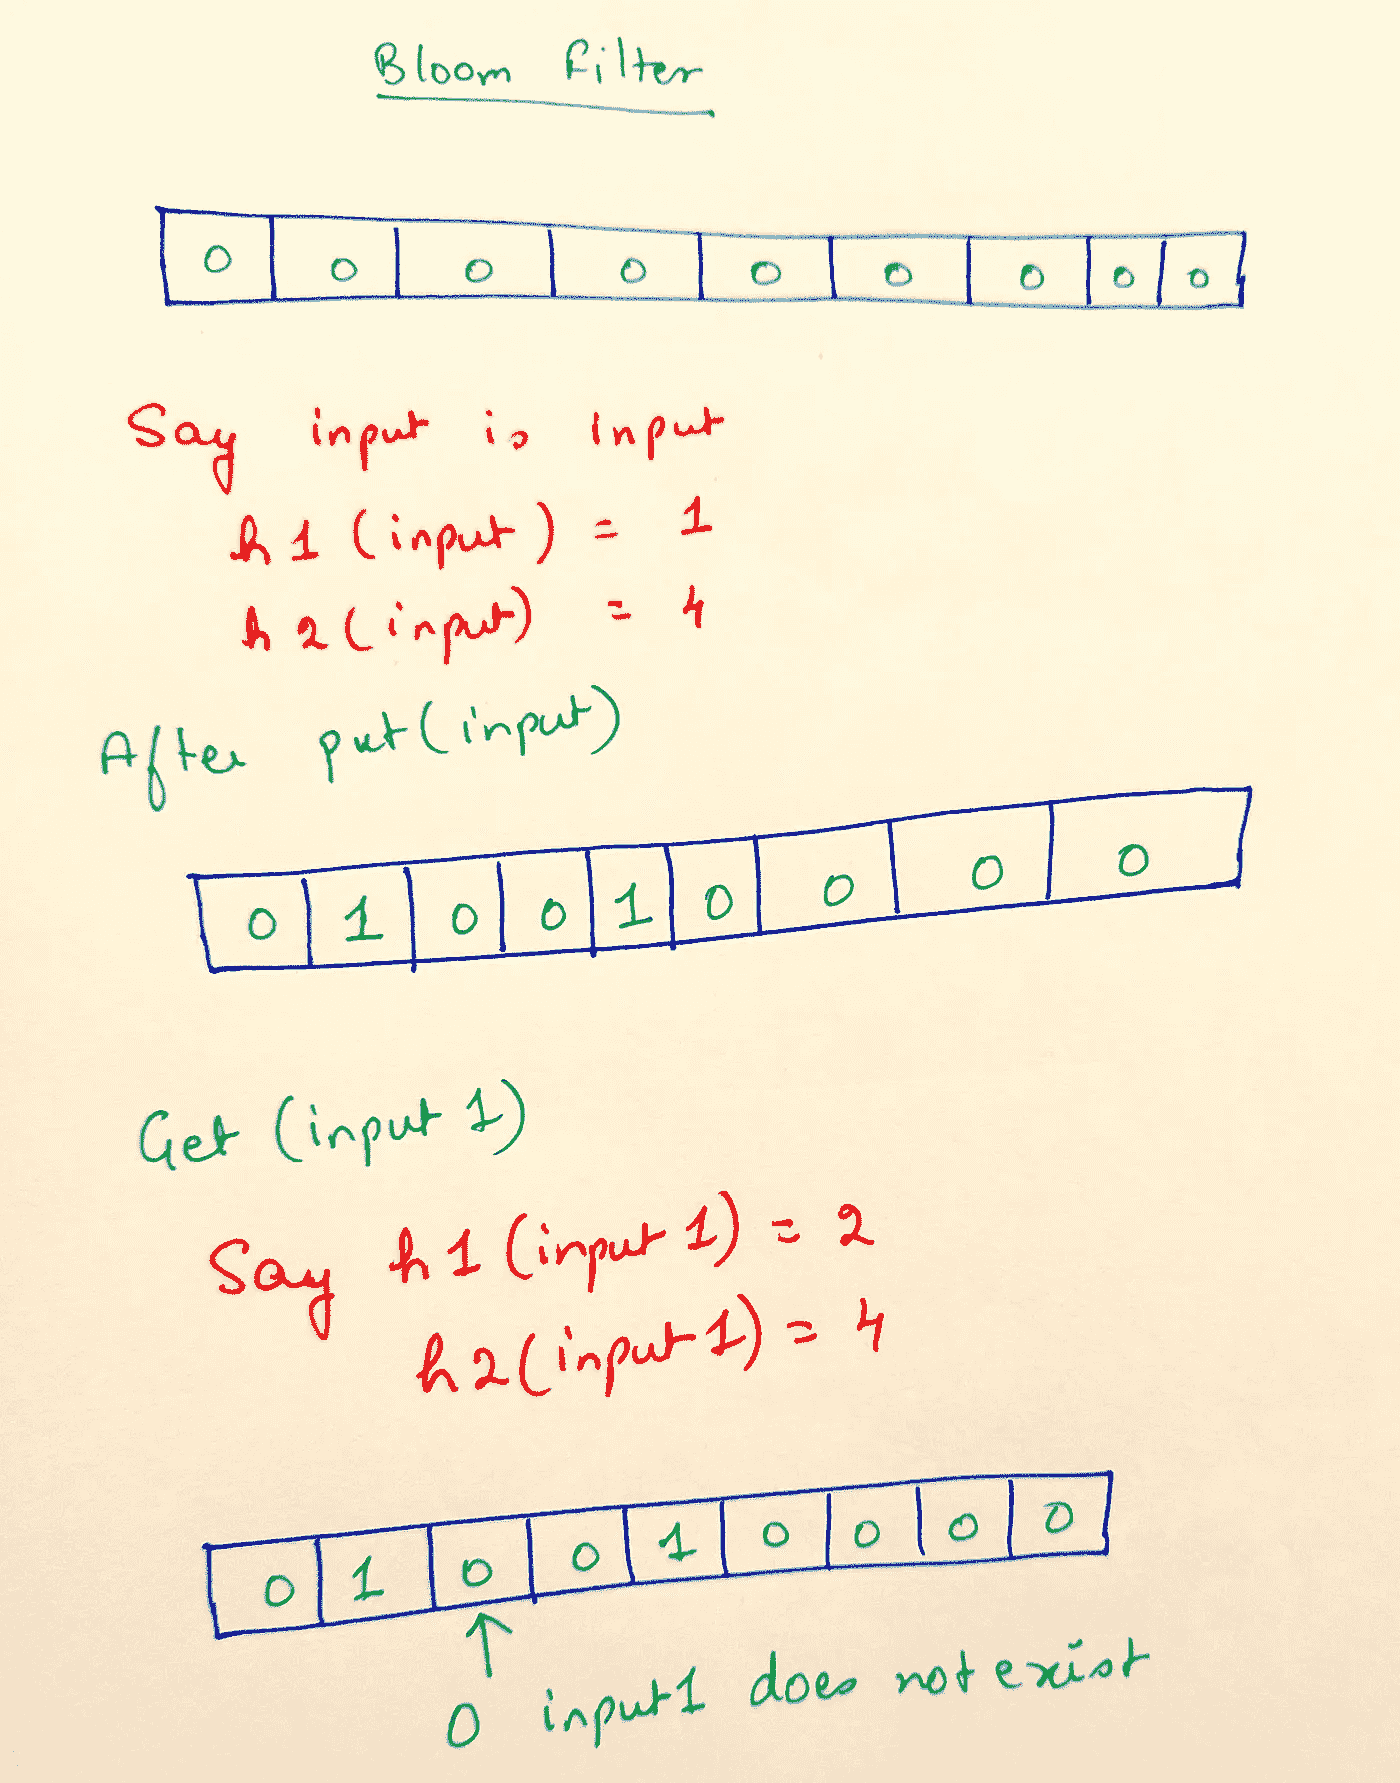 Bloom Filter
0 0 0 0 0 0 0 0 0
Say input is Input
h1 (input) = 1
h2 (input) = 4
After put(input)
0 1 0 0 1 0 0 0 0
Get (input 1)
Say h1 (input 1) = 2
h2 (input 1) = 4
0 1 0 0 1 0 0 0 0
0 input1 does not exist